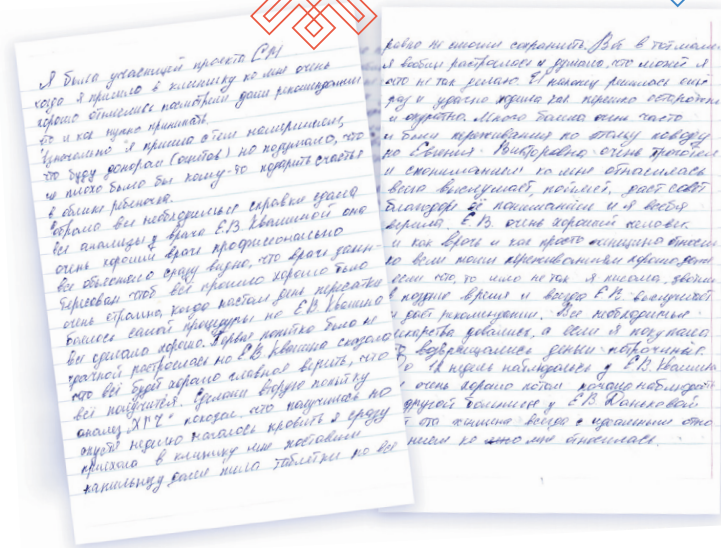 Я была участницей проекта СМ
когда я пришла в клинику ко мне очень
хорошо отнеслись посмотрели дали рекомендации
что и как нужно принимать.
Изначально я пришла с тем намерением,
что буду донором (ооцитов) но подумала, что
не плохо было бы кому-то подарить счастье
в облике ребёнка.
Собрала все необходимые справки сдала
все анализы у врача Е.В. Квашниной она
очень хороший врач профессионально
все объяснила сразу видно, что врач заинте-
ресован чтоб все прошло хорошо было
очень страшно, когда настал день пересадки
боялась самой процедуры но Е.В. Квашнина
все сделала хорошо. Первая попытка была не
удачной расстроилась но Е.В. Квашнина сказала
что всё будет хорошо главное верить, что
всё получится. Сделали вторую попытку
анализ ХГЧ показал, что получилась но
спустя неделю началось кровить я сразу
приехала в клинику мне поставили
капельницу далее пила таблетки но всё
равно не смогли сохранить. Всё в тот момент
я вообще растроилась и думала, что может я
что не так делаю. И наконец решилась ещё
раз и удачно ходила как первую осторожно
и аккуратно. Много болела очень часто
и были переживания по этому поводу
но Евгения Викторовна очень
и с пониманием ко мне относилась
всегда выслушает, поймет, даст совет
благодаря её пониманию и я всегда
верила. Е.В. очень хороший человек.
и как врач и как просто женщина
ко всем моим переживаниям хорошо, даже
если что, то шло не так я писала, звонила
в позднее время и всегда Е.В. выслушает
и даёт рекомендации. Все необходимые
лекарства давались, а если я покупала
то возвращались деньги потраченные.
недель наблюдалась у Е.В. Квашнина
и очень хорошо потом начала наблюдаться
другой больнице у Е.В. Даньковой
эта женщина всегда с идеальным отно
нием ко мне относилась.